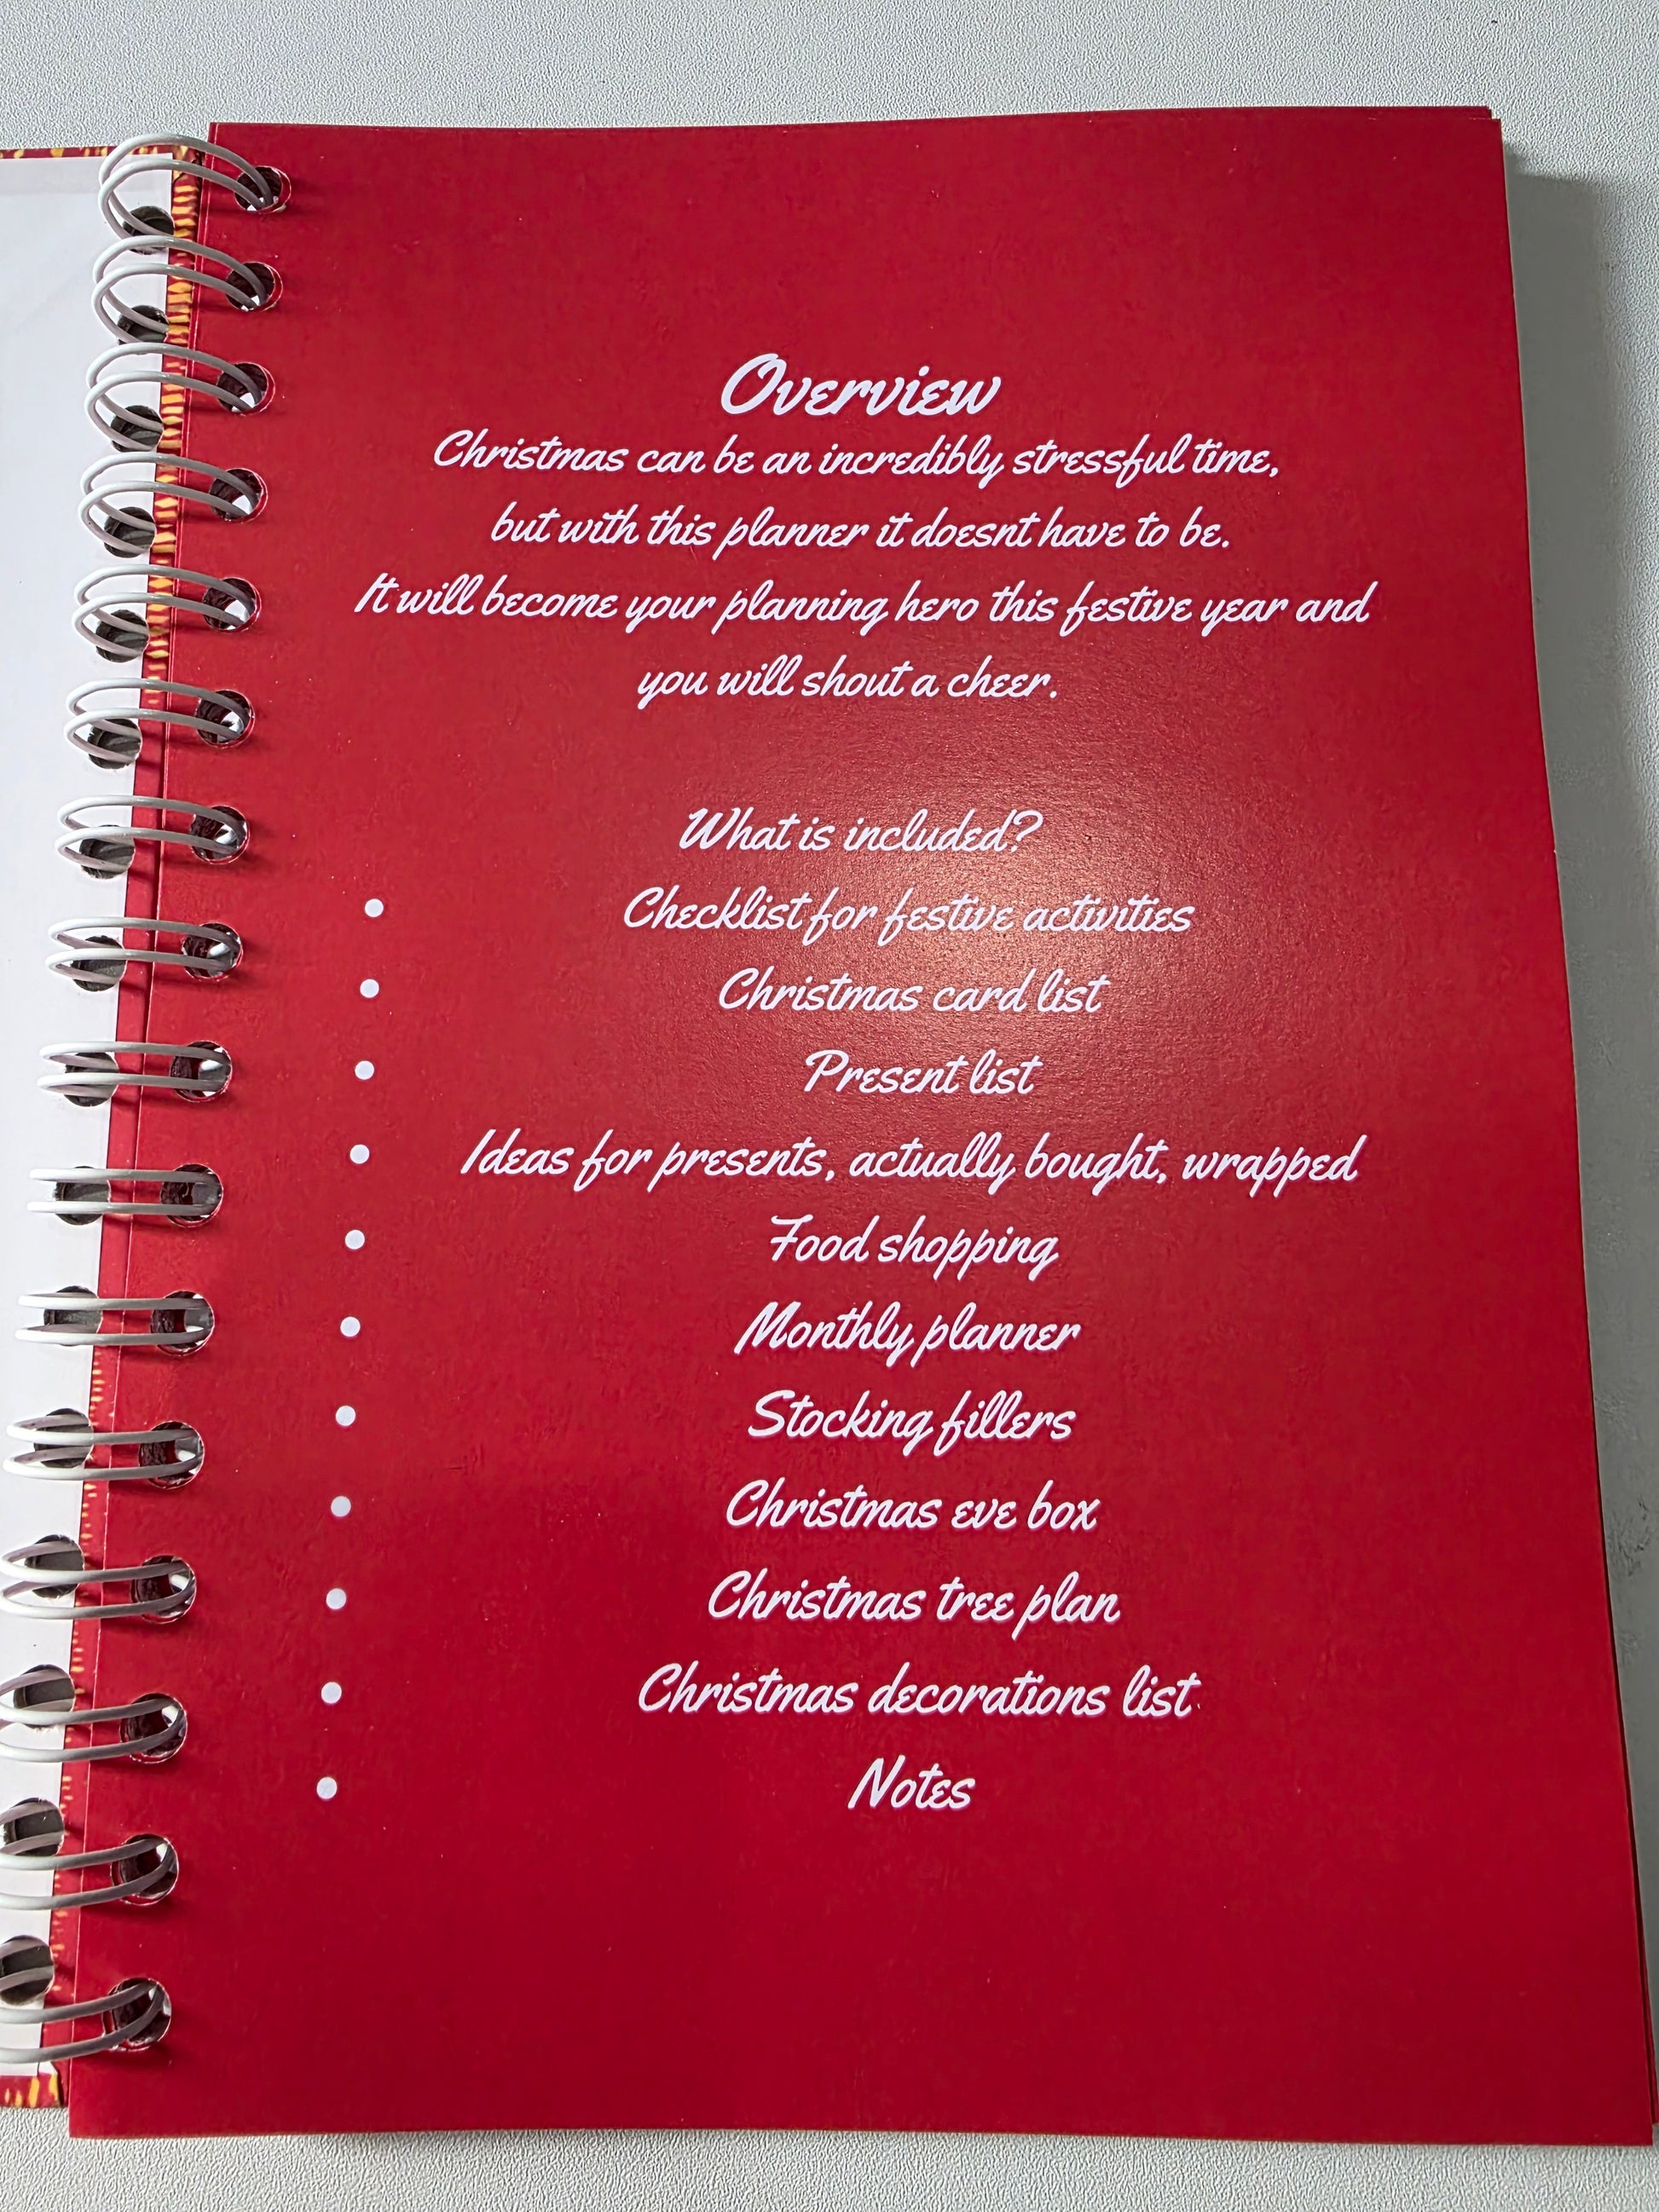 Overview
Christmas can be an incredibly stressful time,
but with this planner it doesnt have to be.
It will become your planning hero this festive year and
you will shout a cheer.
What is included?
• Checklist for festive activities
• Christmas card list
• Present list
• Ideas for presents, actually bought, wrapped
• Food shopping
• Monthly planner
• Stocking fillers
• Christmas eve box
• Christmas tree plan
• Christmas decorations list
• Notes